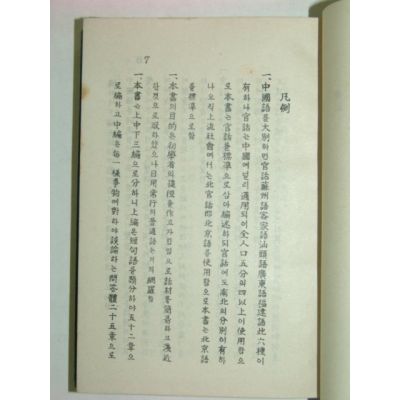 凡例
一、中國語를 大別하면 官話 蘇州語 客家語 汕頭語 廣東語 福建語 此六種이
有하나 官話는 中國에 널리 通用되여 全人口 五分의 四以上이 使用함으
로 本書는 官話를 標準으로 삼아 編述하되 官話에도 南北의 分別이 有하
나 오직 上流社會에서는 北官話 即 北京語를 使用함으로 本書는 北京語
를 標準으로 함
一、本書의 目的은 初學者의 捷徑을 作고자 함임으로 話材를 簡易하고 淺近
한 것으로 取하였으나 日用常行의 普通語는 거의 網羅함
一、本書는 上中下三編으로 分하니 上編은 短句語를 類分하야 五十二章으
로 編하고 中編은 每一樣事物에 對하야 談論하는 問答體 二十五章으로
7